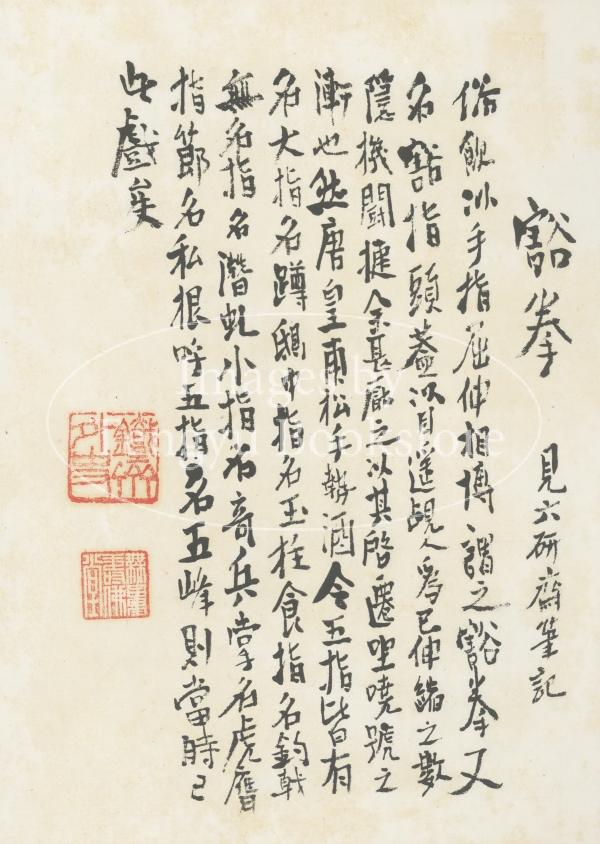 豁拳
見六研齋筆記
俗飲以手指屈伸相博謂之豁拳又
名豁指頭蓋以目遥覘人爲已伸縮之數
隱機鬬捷余甚厭之以其啓遷坐嘵號之
漸也然唐皇甫松手勢酒令五指皆有
名大指名蹲鴟中指名玉柱食指名鈎戟
無名指名潛虬小指名奇兵掌名虎膺
指節名私根呼五指名五峰則當時已
此戲矣
Images by
Fengyu Bookstore